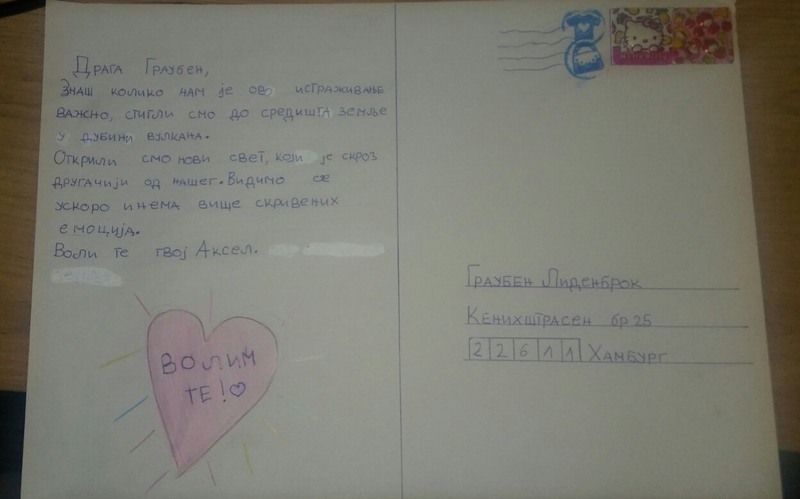 Драга Граубен,
Знаш колико нам је ово истраживање
важно, стигли смо до средишта земље
у дубини вулкана.
Открили смо нови свет, који је скроз
другачији од нашег. Видимо се
ускоро и нема више скривених
емоција.
Воли те твој Аксел.
ВОЛИМ
ТЕ!
Граубен Лиденброк
Кенихштрасен бр 25
22611 Хамбург